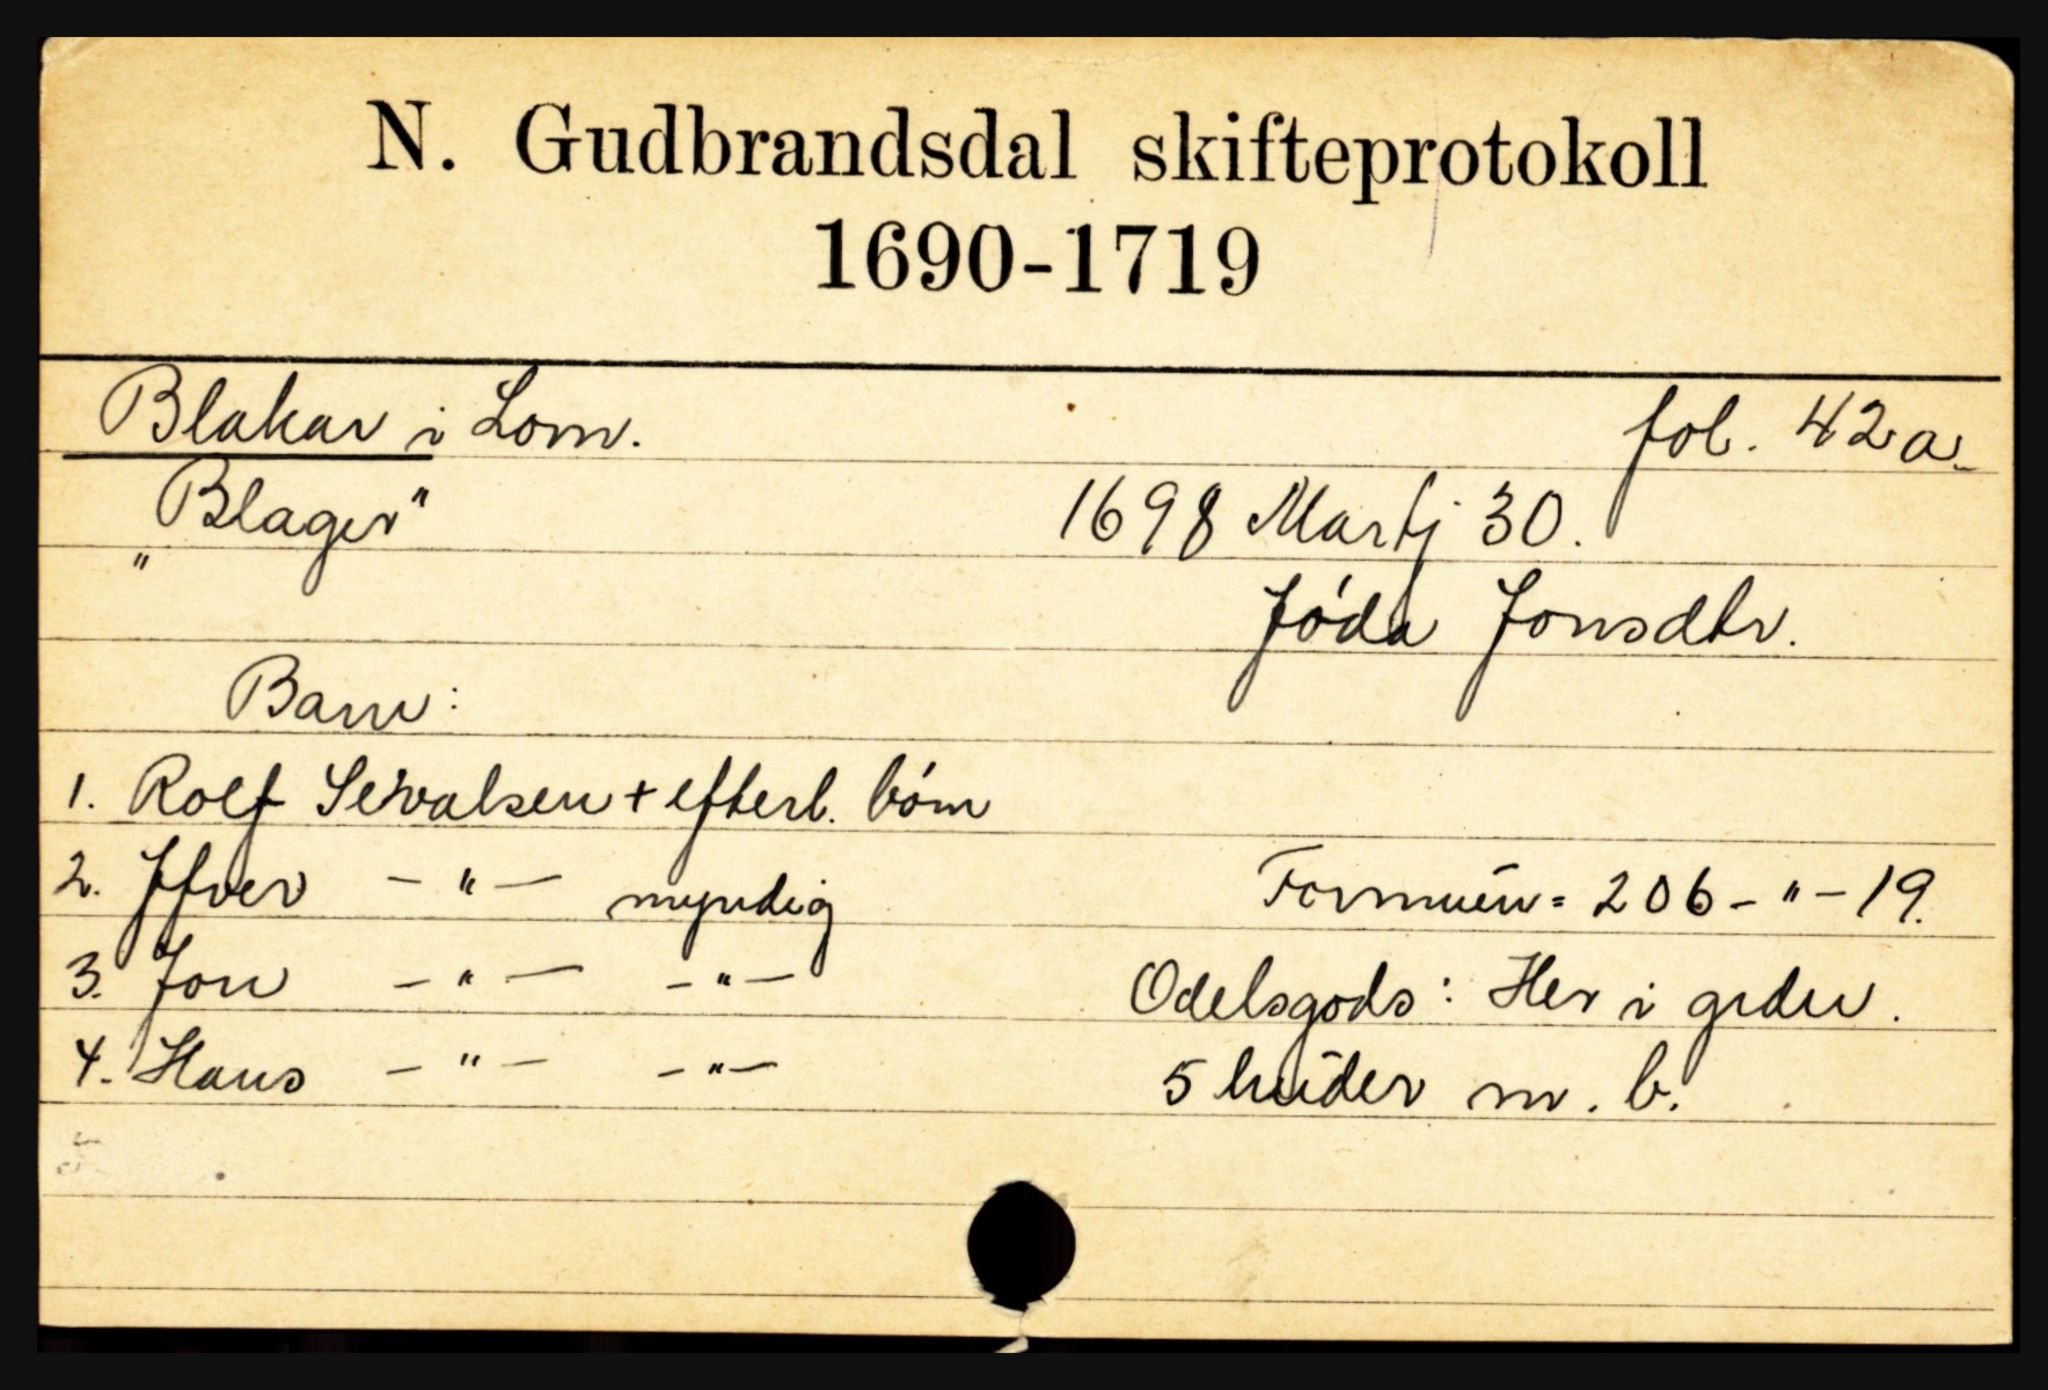 N. Gudbrandsdal skifteprotokoll
1690-1719
Blakar i Lom. fol. 42a.
"Blager" 1698 Martj 30.
Jóda Jonsdtr.
Barn:
1. Rolf Sewalsen + efterl. börn
2. Jfver -"- myndig Formuen = 206-"-19.
3. Jon -"- -"- Odelsgods: Her i grdn.
4. Hans -"- -"- 5 huder m. b.